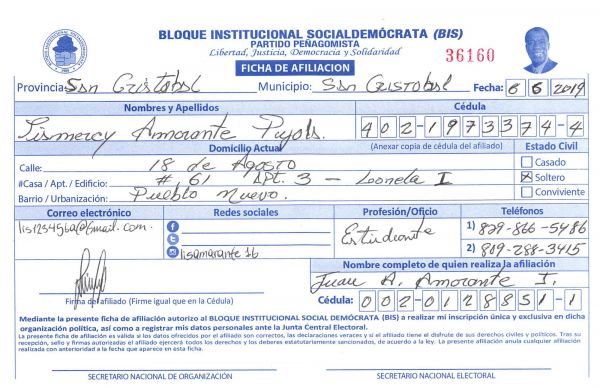 BLOQUE INSTITUCIONAL SOCIALDEMÓCRATA (BIS)
PARTIDO PEÑAGOMISTA
Libertad, Justicia, Democracia y Solidaridad
36160
FICHA DE AFILIACION
Provincia: San Cristobal Municipio: San Cristobal Fecha: 6 6 2019
Nombres y Apellidos Cédula
Lismercy Amorante Pujols. 402-1973374-4
Domicilio Actual (Anexar copia de cédula del afiliado) Estado Civil
Calle: 18 de Agosto Casado
#Casa / Apt. / Edificio: # 61 Apt. 3 - Leonela I Soltero
Barrio / Urbanización: Pueblo Nuevo. Conviviente
Correo electrónico Redes sociales Profesión/Oficio Teléfonos
lis1234569a@Gmail.com. Estudiante 1) 829-866-5486
lisamarante16 2) 809-288-3415
Nombre completo de quien realiza la afiliación
Juan A. Amorante I.
Firma del afiliado (Firme igual que en la Cédula) Cédula: 002-0128851-1
Mediante la presente ficha de afiliación autorizo al BLOQUE INSTITUCIONAL SOCIAL DEMÓCRATA (BIS) a realizar mi inscripción única y exclusiva en dicha
organización política, así como a registrar mis datos personales ante la Junta Central Electoral.
La presente ficha de afiliación es válida si los datos ofrecidos por el afiliado son correctos, las declaraciones veraces y si el afiliado tiene el disfrute de sus derechos civiles y políticos. Tras su
recepción, sello y firmas autorizadas el afiliado ejercerá todos los derechos y los deberes estatutariamente sancionados, de acuerdo a la ley. La presente afiliación anula cualquier afiliación
realizada con anterioridad a la fecha que aparece en esta ficha.
SECRETARIO NACIONAL DE ORGANIZACIÓN SECRETARIO NACIONAL ELECTORAL